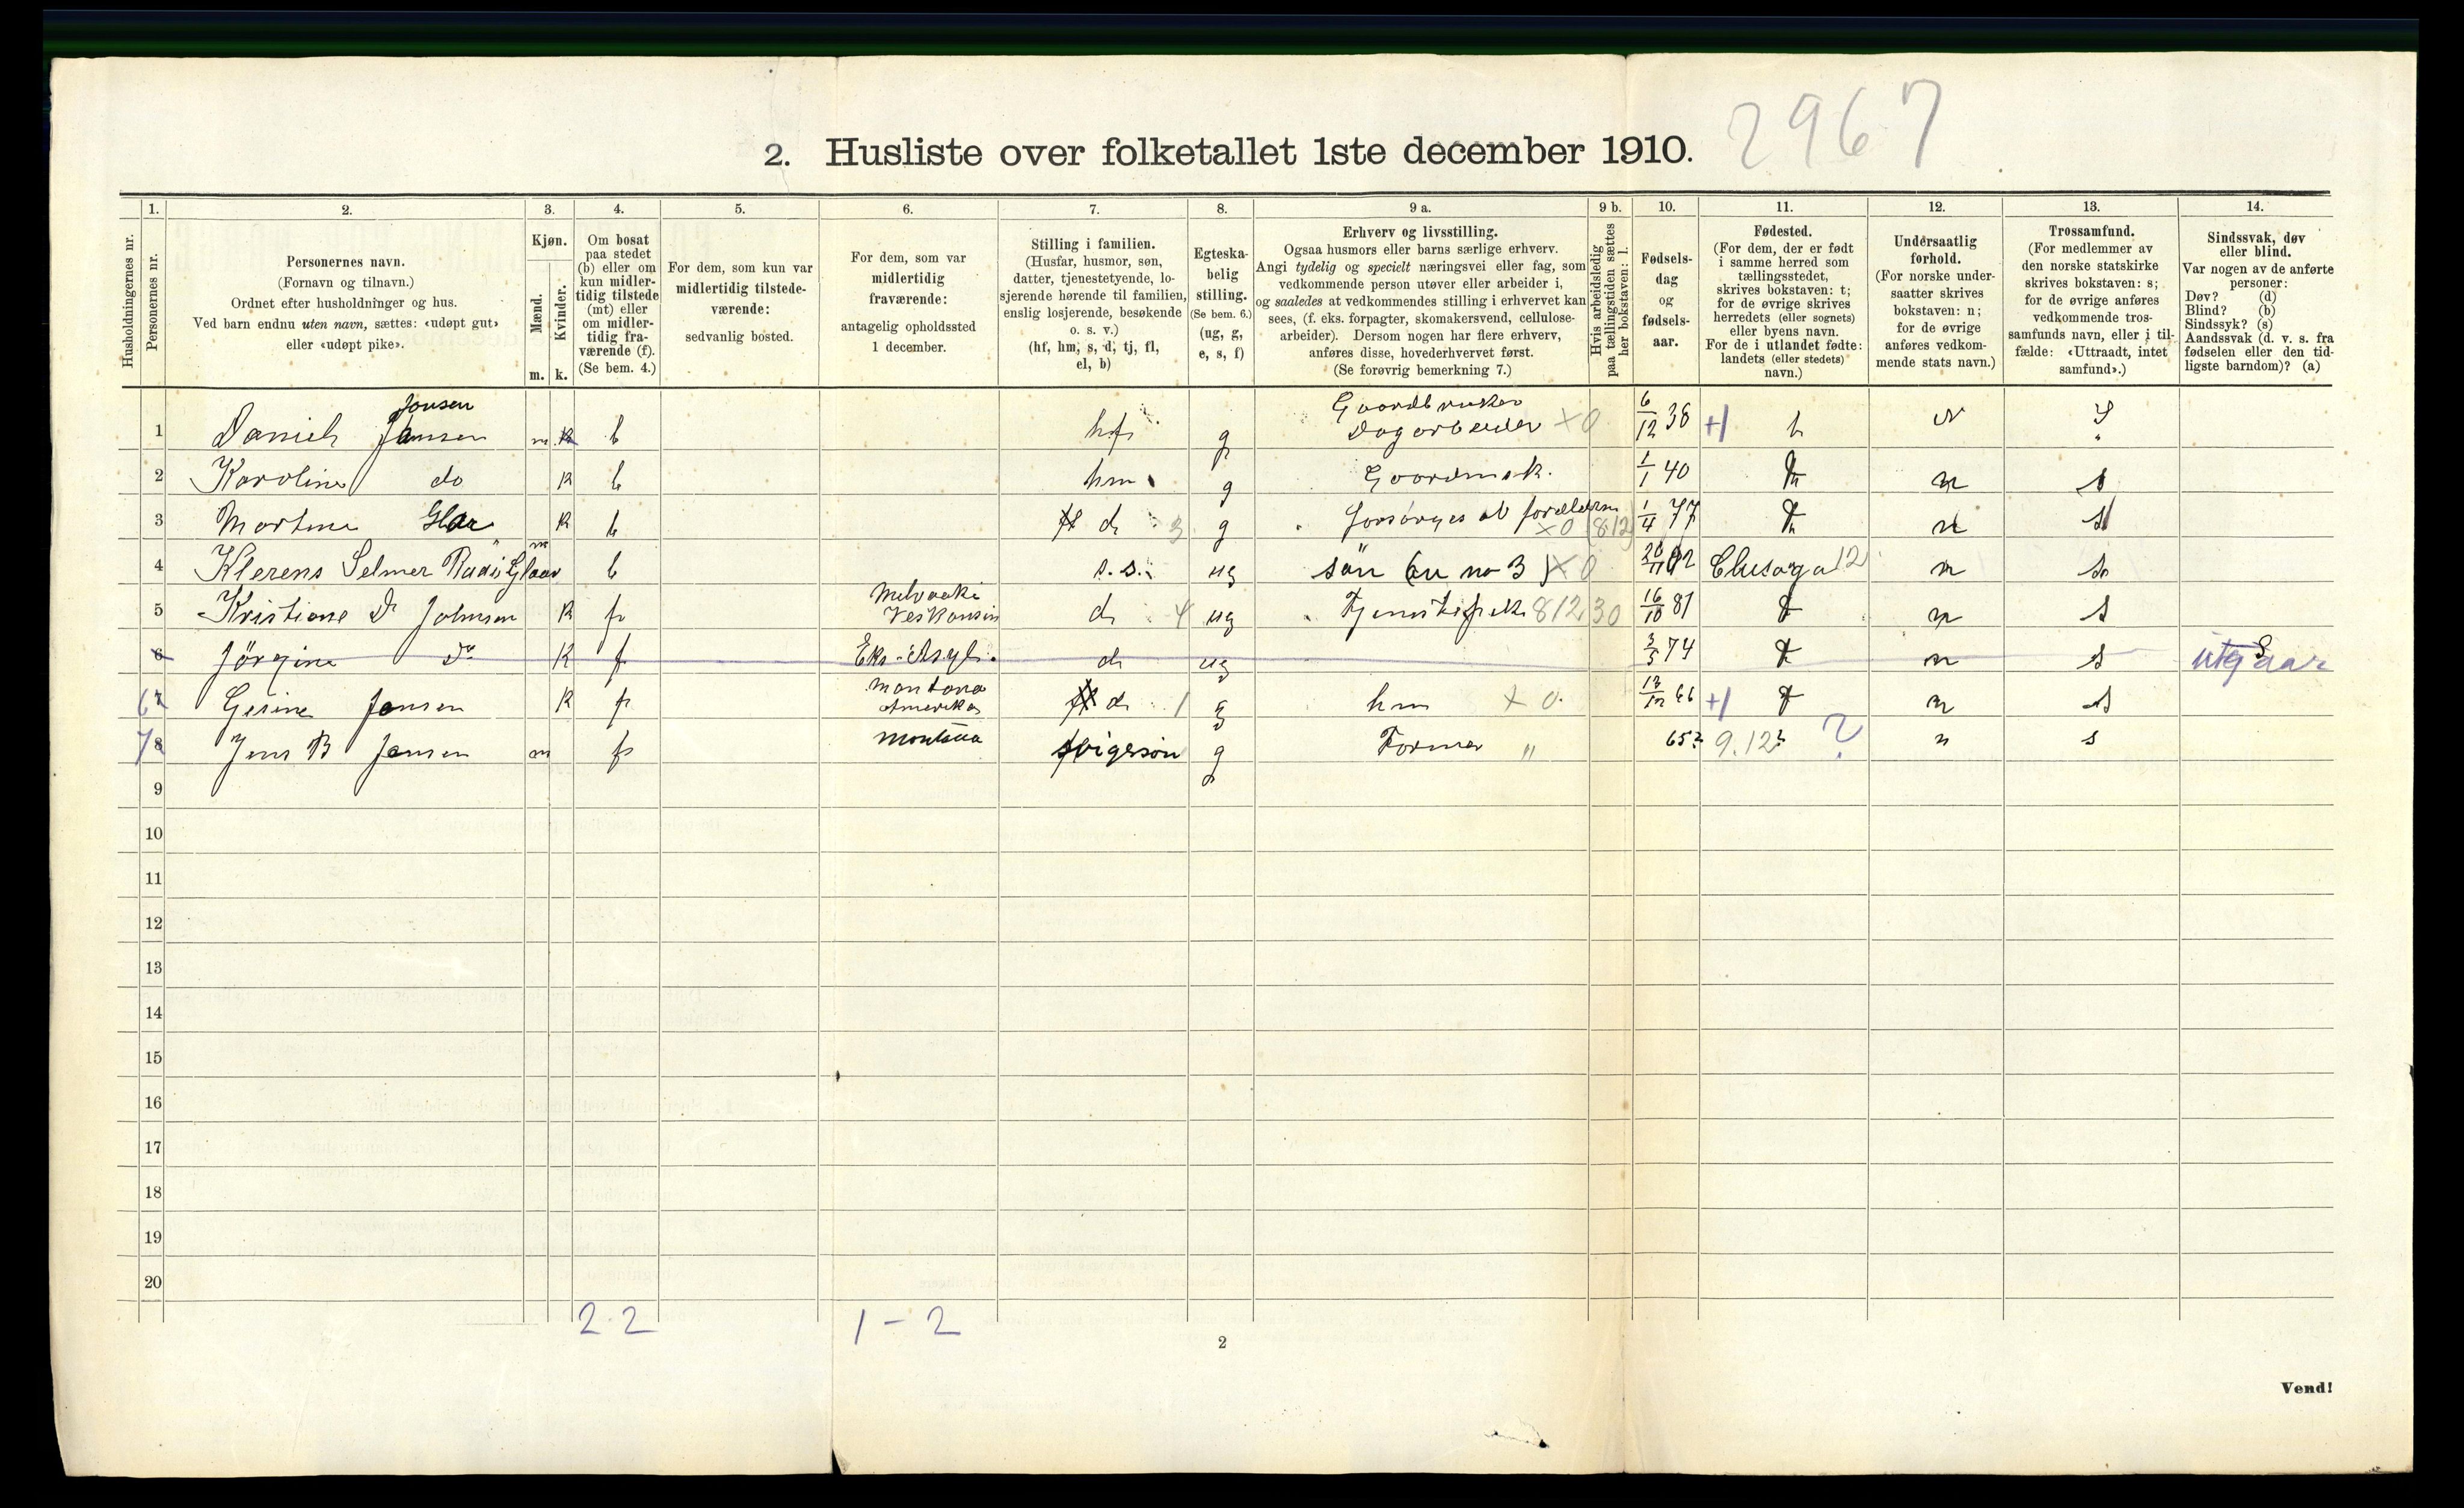 2967
2. Husliste over folketallet 1ste december 1910.
Husholdningernes nr.
1.
Personernes nr.
2.
Personernes navn.
(Fornavn og tilnavn.)
Ordnet efter husholdninger og hus.
Ved barn endnu uten navn, sættes: «udøpt gut»
eller «udøpt pike».
3.
Kjøn.
Mænd.
Kvinder.
m. k.
4.
Om bosat
paa stedet
(b) eller om
kun midler-
tidig tilstede
(mt) eller
om midler-
tidig fra-
værende (f).
(Se bem. 4.)
5.
For dem, som kun var
midlertidig tilstede-
værende:
sedvanlig bosted.
6.
For dem, som var
midlertidig
fraværende:
antagelig opholdssted
1 december.
7.
Stilling i familien.
(Husfar, husmor, søn,
datter, tjenestetyende, lo-
sjerende hørende til familien,
enslig losjerende, besøkende
o. s. v.)
(hf, hm, s, d, tj, fl,
el, b)
8.
Egteska-
belig
stilling.
(Se bem. 6.)
(ug, g,
e, s, f)
9 a.
Erhverv og livsstilling.
Ogsaa husmors eller barns særlige erhverv.
Angi tydelig og specielt næringsvei eller fag, som
vedkommende person utøver eller arbeider i,
og saaledes at vedkommendes stilling i erhvervet kan
sees, (f. eks. forpagter, skomakersvend, cellulose-
arbeider). Dersom nogen har flere erhverv,
anføres disse, hovederhvervet først.
(Se forøvrig bemerkning 7.)
9 b.
Hvis arbeidsledig
paa tællingstiden sættes
her bokstaven: l.
10.
Fødsels-
dag
og
fødsels-
aar.
11.
Fødested.
(For dem, der er født
i samme herred som
tællingsstedet,
skrives bokstaven: t;
for de øvrige skrives
herredets (eller sognets)
eller byens navn.
For de i utlandet fødte:
landets (eller stedets)
navn.)
12.
Undersaatlig
forhold.
(For norske under-
saatter skrives
bokstaven: n;
for de øvrige
anføres vedkom-
mende stats navn.)
13.
Trossamfund.
(For medlemmer av
den norske statskirke
skrives bokstaven: s;
for de øvrige anføres
vedkommende tros-
samfunds navn, eller i til-
fælde: «Uttraadt, intet
samfund».)
14.
Sindssvak, døv
eller blind.
Var nogen av de anførte
personer:
Døv? (d)
Blind? (b)
Sindssyk? (s)
Aandssvak (d. v. s. fra
fødselen eller den tid-
ligste barndom)? (a)
Jonsen Gaardbruker
1 Daniel Jansen m k b hf g Dagarbeider X0 6/12 38 +1 t N S
2 Karoline do k b hm g Gaardmsk. 1/1 40 t n s
3 Martine k b d 3 g forsørges af forældrene X0 812 1/4 77 t n s
4 Klerens Selmer m b s. s. ug sön X0 12 n s
Melvaaki
5 Kristiane D Johnsen k f Veskonsin d 4 ug 812 30 16/10 81 t n s
6 Jörgine Do K f Eks. Asyl. d ug 3/5 74 t n s S utgaar
Montana
67 Gesine Jansen k f Amerika d 1 g hm X 0 13/12 66 +1 t n s
78 Jens B Jansen m f Montana svigersön g Farmer " 65? 9.12? ? n s
9
10
11
12
13
14
15
16
17
18
19
20
2 2 1 - 2
2
Vend!